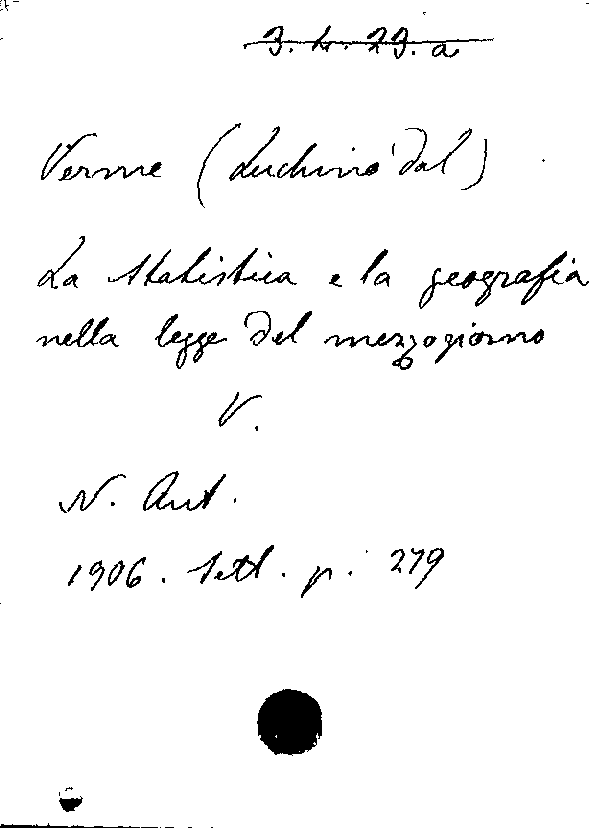 3. L. 29. a
Verme (Luchino dal)
La statistica e la geografia
nella legge del mezzogiorno
V.
N. Ant.
1906. Sett. p. 279